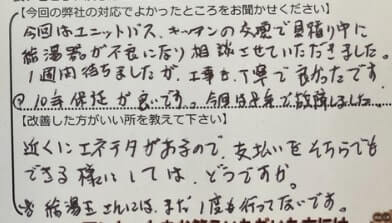 【今回の弊社の対応でよかったところをお聞かせください】
今回はユニットバス、キッチンの交換で見積り中に
給湯器が不良になり相談させていただきました。
1週間待ちましたが、工事も丁寧で良かったです。
10年保証が良いです。今回は8年で故障しました…
【改善した方がいい所を教えて下さい】
近くにエネチタがあるので、支払いをそちらでも
できる様にしては、どうですか。
給湯王さんには、まだ1度も行ってないです。